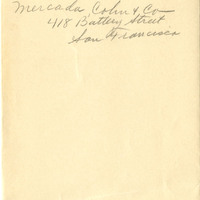 Mercada, Cohn & Co
418 Battery Street
San Francisco